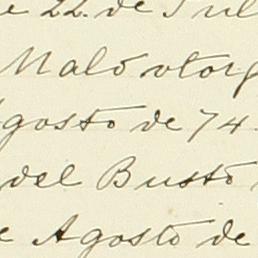 e 22. de Jul
Maló otorg
Agosto de 74.
del Busto
e Agosto de